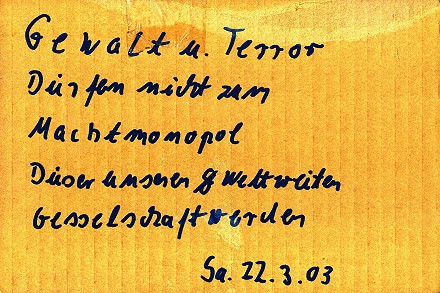 Gewalt u. Terror
Dürfen nicht zum
Machtmonopol
Dieser unserer Weltweiten
Gesselschaft werden
Sa. 22.3.03